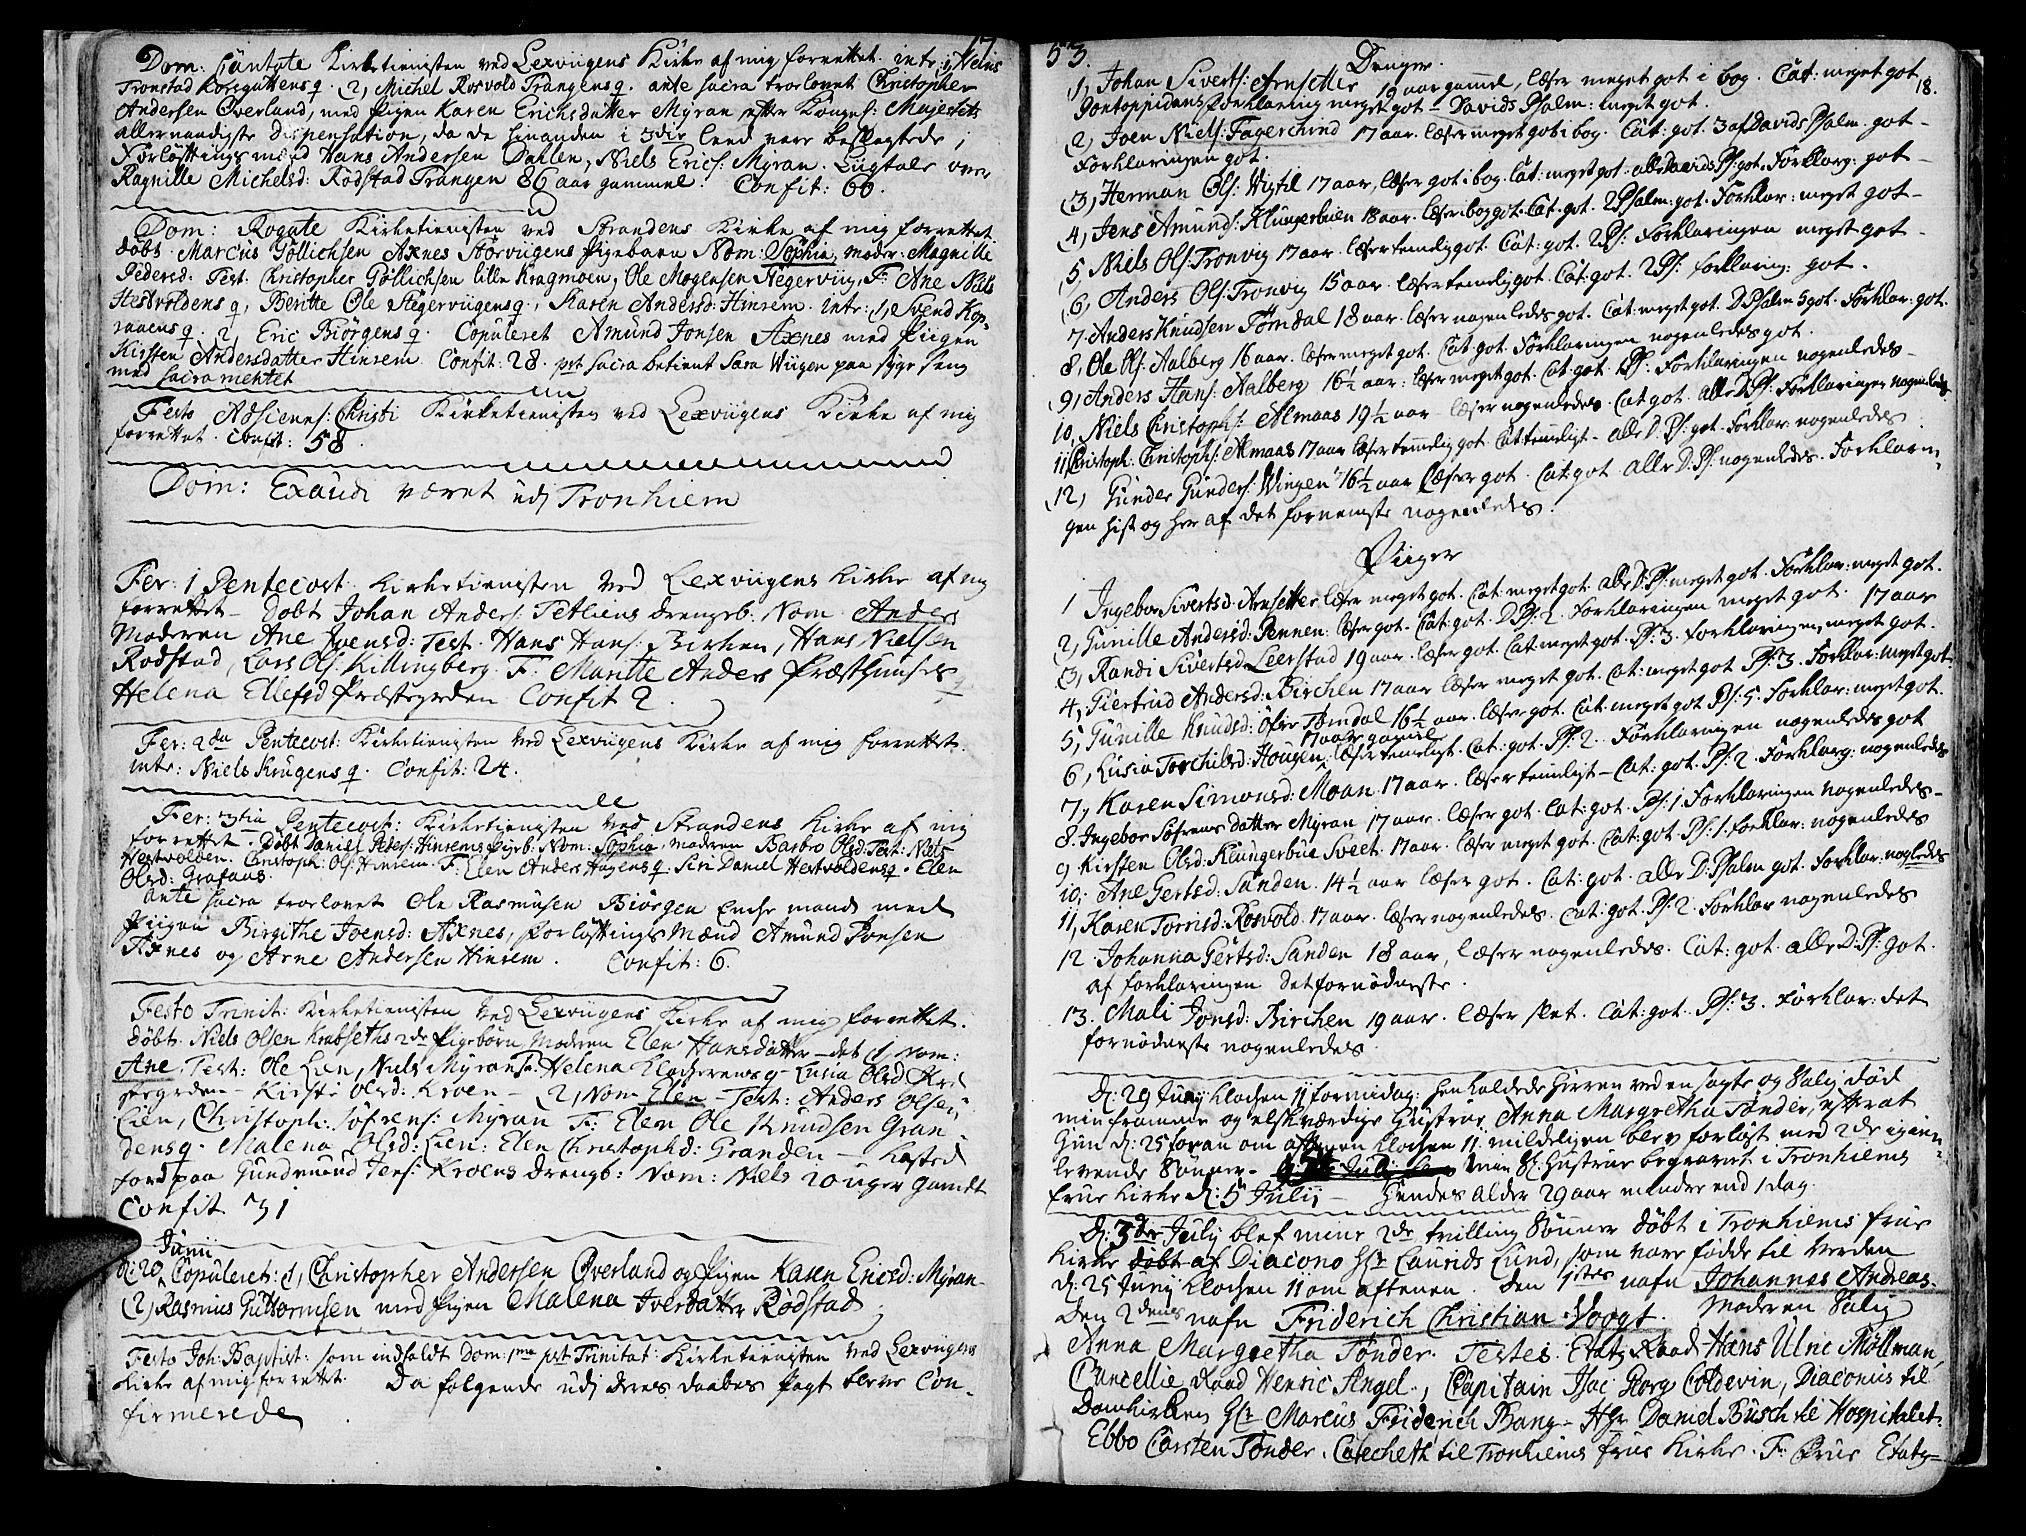 17
Dom: Cantate Kirketienisten ved Lexviigens Kirke af mig forrettet. intr: 1, Niels
Tronstad Korsgattens q. (2, Michel Rosvold Trangens q. ante sacra trolovet Christopher
Andersen Øverland, med Pigen Karen Erichsdatter Myran efter Kongel: Majestets
allernaadigste Dispensation, da de hinanden i 3die leed vare beslegtede,
Forløftningsmænd Hans Andersen Dahlen, Niels Erics: Myran. Liigtale over
Ragnille Michelsd: Rødstad Trangen 86 aar gammel. Confit: 60.
Dom: Rogate Kirketienisten ved Strandens Kirke af mig forrettet
døbt Marcus Göllichsen Axnes Størviigens Pigebarn Nom: Sophia, moder: Magnille
Pedersd: Test: Christopher Göllichsen lille Kragmoen, Ole Mogensen Hegerviig, F: Ane Niels
Hestvoldens q, Beritte Ole Hegerviigens q, Karen Andersd: Hinrem. intr: (1, Svend Kop-
raaens q. 2, Eric Biörgens q. Copuleret Amund Jonsen Axnes med Piigen
Kirsten Andersdatter Hinrem Confit: 28. pst sacra betient Sara Wiigen paa syge seng
med sacramentet
Festo Adscens: Christi Kirketienisten ved Lexviigens Kirke af mig
forrettet. Confit: 58.
Dom: Exaudi været udj Tronhiem
Fer: 1 Pentecost: Kirketienisten ved Lexviigens Kirke af mig
forrettet – Døbt Johan Anders: Petliens drengeb: Nom Anders
Moderen Ane Joensd: Test. Hans Hans: Birken, Hans Nielsen
Rodstad, Lars Ols: Killingberg. F: Maritte Anders Præsthuuses
Helena Ellefsd Præstegrden Confit 2.
Fer: 2da Pentecost: Kirketienisten ved Lexviigens Kirke af mig forrettet.
intr: Niels Krügens q. Confit: 24.
Fer: 3tia Pentecost: Kirketienisten ved Strandens Kirke af mig
forrettet. Døbt Daniel Peders: Hinrems Pigeb: Nom: Sophia, moderen Barbro Olsd: Test: Niels
Hestvolden. Christoph: Ols: Hinrem. F: Elen Anders Hagens q: Siri Daniel Hestvoldens q. Elen
Olsd: Grafaas.
ante sacra trolovet Ole Rasmusen Biørgen Enche mand med
Piigen Birgithe Joensd: Axnes, forløftnings Mænd Amund Jonsen
Axnes og Arne Andersen Hinrem. Confit: 6.
Festo Trinit: Kirketienisten ved Lexviigens Kirke af mig forrettet.
døbt: Niels Olsen Krabseths 2de Pigebørn, Moderen Elen Hansdatter – det (1, nom:
Ane Test: Ole Lien, Niels Myran F: Helena Klocherens q – Lusia Olsd Præ
stegrden – Kirsti Olsd: Kroen – 2, Nom Elen – Test: Anders Olsen
Lien, Christoph: Søfrens: Myran F: Elen Ole Knudsen Gran-
dens q. Malena Olsd: Lien: Elen Christophd: Granden – Kasted
Jord paa Gundmund Jens: Kroens drengb: Nom: Niels 20 uger gamelt
Confit 31
d: 20 Junii Copuleret: (1, Christopher Andersen Øverland og Pigen Karen Ericsd: Myran–
(2, Rasmus Guttormsen med Pigen Malena Iversdatter Rødstad
Festo Joh: Baptist: som indfaldt Dom: 1ma pst Trinitat: Kirketienisten ved Lexviigens
Kirke af mig forrettet. Da følgende udj deres daabes Pagt bleve Con-
firmerede
53.
18.
Drenger.
1, Johan Siverts: Arnsetter 19 aar gammel, læser meget got i bog. Cat: meget got
Pontoppidans forklaring meget got – Davids Psalm: meget got.
(2, Joen Niels: Fagerchind 17 aar. læser meget got i bog. Cat: got. 3 af Davids Psalm. got –
Forklaringen got.
(3, Herman Ols: Wigtil 17 aar, læser got i bog. Cat: meget got. alle Davids Ps: got. Forklarg: got –
(4, Jens Amunds: Klungerbuen 18 aar. læser i bog got. Cat: got. 2 Psalm: got. Forklar: meget got –
(5, Niels Ols: Tronvig 17 aar. læser temelig got. Cat: got. 2 Ps: Forklaringen meget got –
(6, Anders Ols: Tronvig 15 aar. læser temelig got. Cat: got. 2 Ps. forklaring: got.
7. Anders Knudsen Tømdal 18 aar. læser nogenledes got. Cat: meget got. D Psalm 5 got. Forklar: got.
8, Ole Ols: Aalberg 16 aar. læser meget got. Cat: got. Forklaringen nogenledes got.
(9, Anders Hans: Aalberg 16½ aar: læser meget got. Cat: got: D: Ps: Forklaringen nogenledes –
10, Niels Christoph: Almaas 19½ aar – læser nogenledes. Cat got. Alle D Ps: Forklaringen nogenledes
11, Christoph: Christophs: Almaas 17 aar læser temmelig got. Cat temeligt – alle D. Ps: got. Forklar: nogenledes
(12, Gunder Gunders: Wingen 16½ aar læser got. Cat: got. Alle D: Ps: nogenledes. Forklarin-
gen hist og her af det fornemste nogenledes.
Piiger
1 Ingebor Sivertsd: Arnsetter læser meget got. Cat: meget got. alle D: Ps: meget got. Forklar: meget got.
2, Gunille Andersd: Pennen: læser got. Cat: got. D Ps: 2. Forklaringen meget got. 17 aar
(3, Randi Sivertsd: Leerstad 19 aar. læser got. Cat: meget got. Ps: 3. Forklaringen meget got.
4, Giertrud Andersd: Birchen 17 aar læser meget got. Cat: meget got Ps: 3. Forklar: meget got
5, Gunille Knudsd: Øfre Tømdal 16½ aar. læser got. Cat: meget got Ps: 5. Forklar: meget got.
6, Lusia Torchilsd: Hougen 17 aar gamel læser temeligt. Cat: got. Ps: 2. Forklaringen nogenledes got
7, Karen Simonsd: Moan 17 aar. læser temeligt – Cat: got. Ps: 2. Forklarg: nogenledes
8. Ingebor Søfrens datter Myran 17 aar. læser got. Cat: got. Ps: 1. Forklaringen nogenledes –
9, Kirsten Olsd: Klungerbue Sveet. 17 aar. læser meget got. Cat: got. Ps: 1. forklar: nogenledes
10; Ane Gertsd: Sanden. 14½ aar læser got. Cat: got. alle D: Psalm got. Forklar: nogledes
11, Karen Torrisd: Rosvold. 17 aar. læser nogenledes. Cat: got. Ps: 2. Forklar nogenledes
12. Johanna Gertsd: Sanden 18 aar, læser nogenledes. Cat: got. alle D: Ps: got.
af forklaringen det fornødneste.
13. Mali Jonsd: Birchen 19 aar. læser slet. Cat: got. Ps: 3. Forklar: det
fornødneste nogenledes.
D: 29 Junij Klochen 11 formidag: henkaldede Herren ved en sagte og Salig død
min fromme og elskværdige Hustrue Anna Margretha Tønder, efterat
Hun d: 25 foran om aftenen klochen 11. mildeligen blev forløst med 2de igien-
levende Sønner – min Sl: Hustrue begravet i Tronhiems
frue Kirke d: 5 Julij – Hendes alder 29 aar mindre end 1 dag.
D: 3die July blef mine 2de tvilling Sønner døbt i Tronhiems frue
Kirke døbt af Diacono Hr Laurids Lund, som vare fødde til Verden
d: 25 Junij klochen 11 om aftenen. Den 1stes nafn Johannes Andreas.
Den 2dens nafn Friderich Christian Voogt. Moderen Salig
Anna Margretha Tønder. Testes. Etatz Raad Hans Ulric Møllman,
Cancellie Raad Henric Angel, Capitain Isac Georg Coldevin, Diaconus til
Domkirken Hr Marcus Friderich Bang – Hr Daniel Busch til Hospitalet.
Ebbo Carsten Tønder. Catecheth til Tronhiems frue Kirke. F: Frue Etatz-